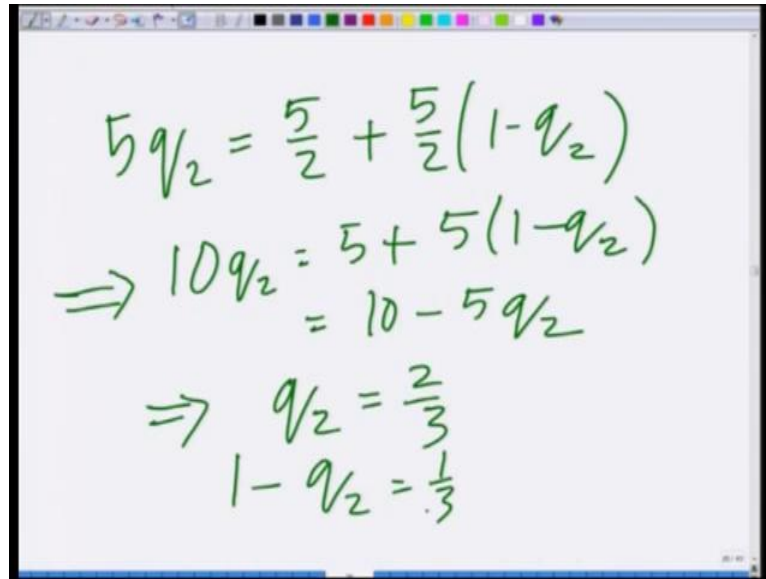 5q₂ = 5/2 + 5/2 (1 - q₂)
⇒ 10q₂ = 5 + 5(1 - q₂)
= 10 - 5q₂
⇒ q₂ = 2/3
1 - q₂ = 1/3